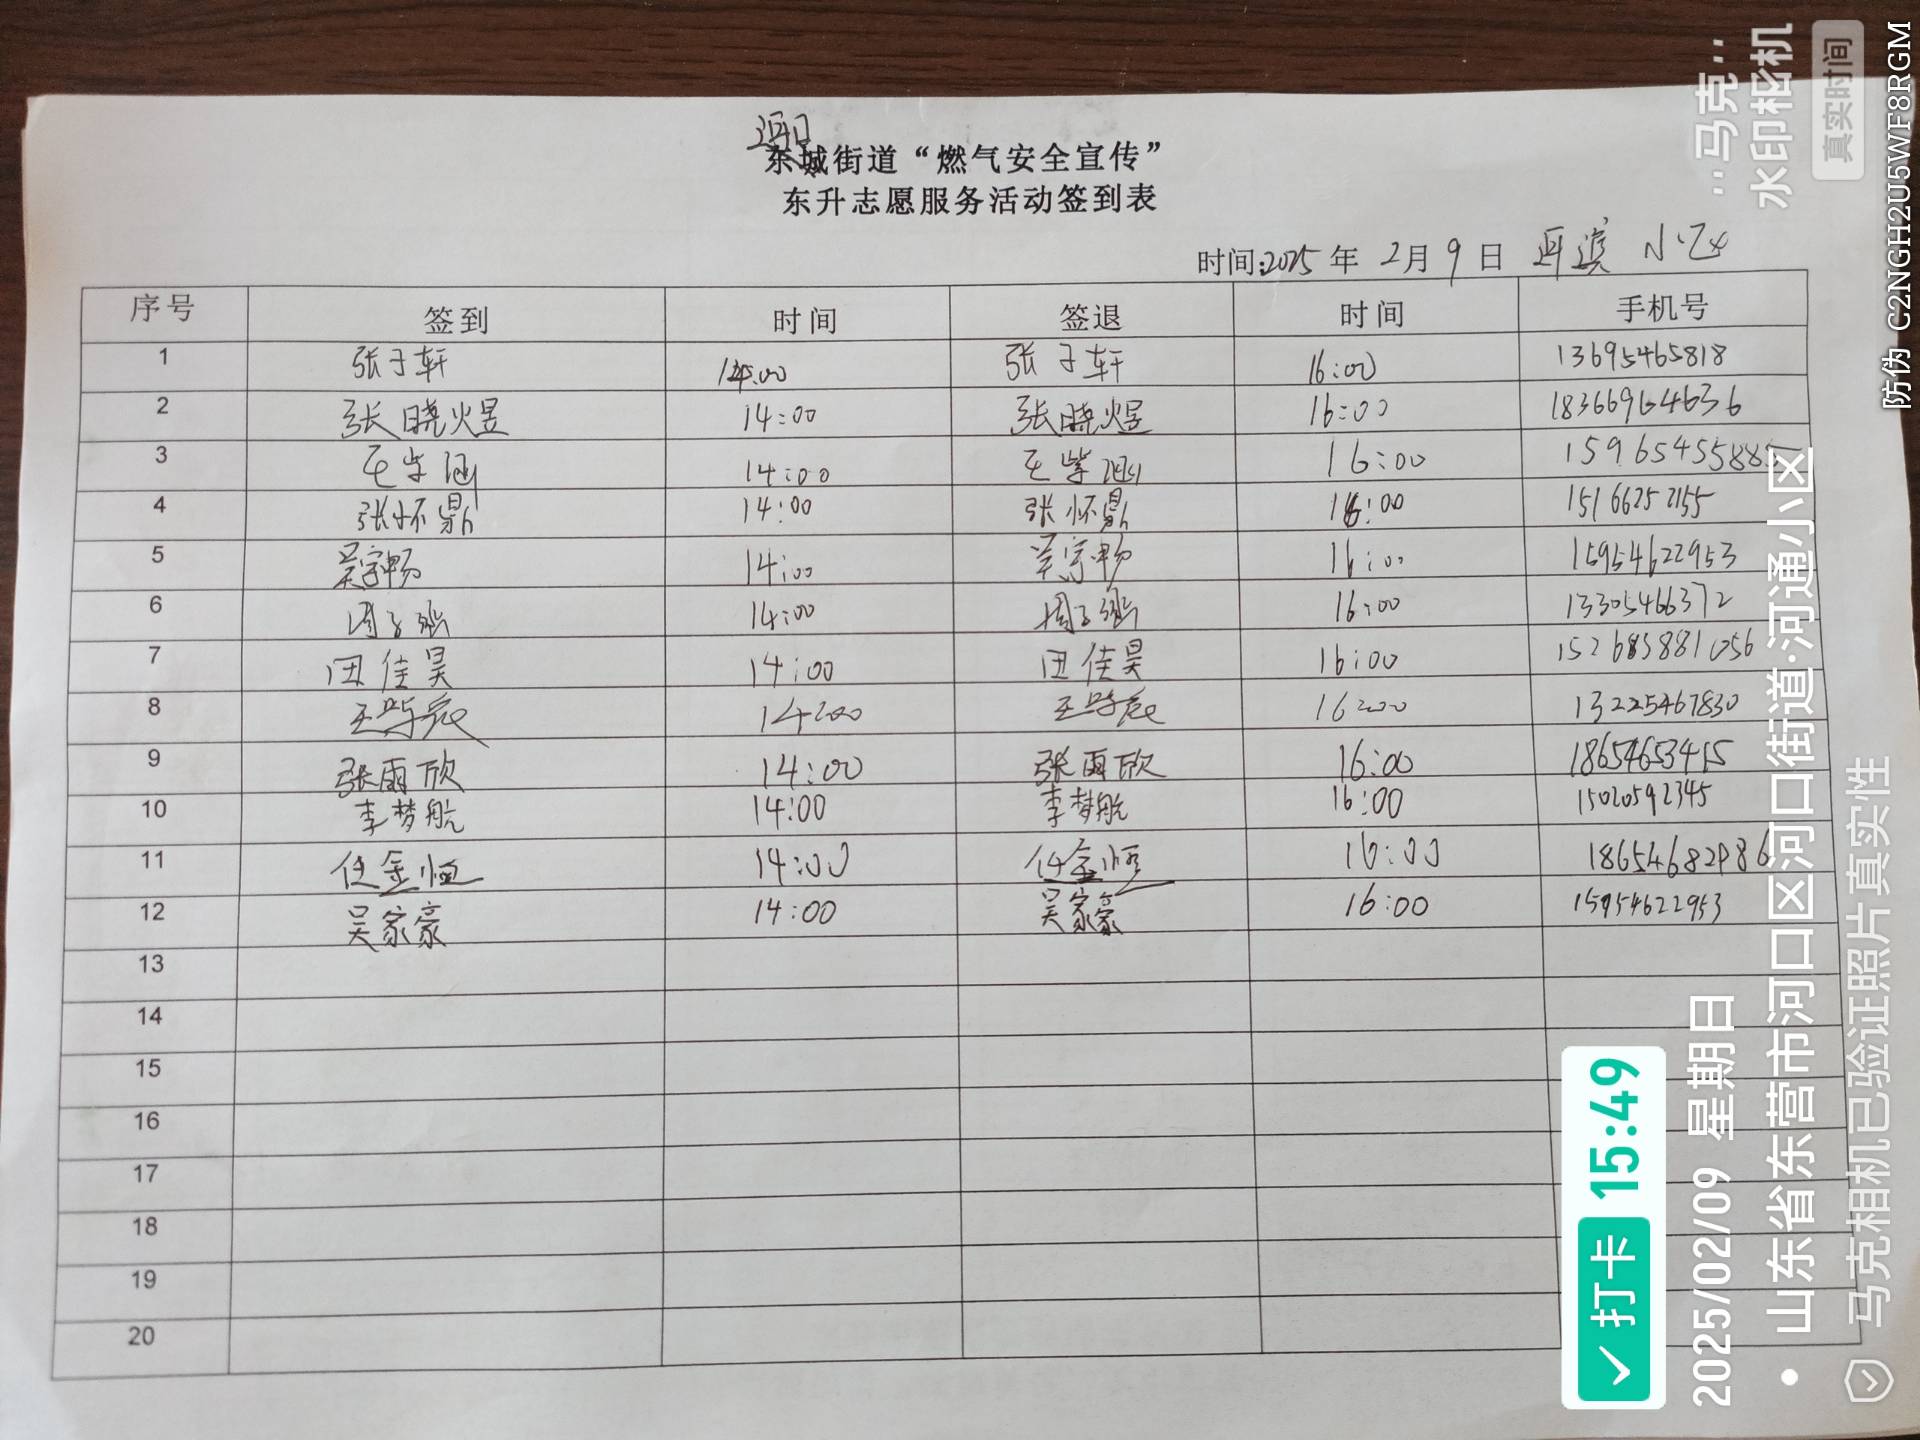 河口
东城街道“燃气安全宣传”
东升志愿服务活动签到表
时间:2025 年 2月 9 日 小区
序号 签到 时间 签退 时间 手机号
1 张子轩 14:00 张子轩 16:00 13695465818
2 张晓煜 14:00 张晓煜 16:00 18366964636
3 王紫涵 14:00 王紫涵 16:00 15965455885
4 张怀鼎 14:00 张怀鼎 16:00 15166252155
5 吴宇畅 14:00 吴宇畅 16:00 15954622953
6 14:00 16:00 13305466372
7 田佳昊 14:00 田佳昊 16:00 152685881056
8 14:00 16:00 13225467830
9 张雨欣 14:00 张雨欣 16:00 18654653415
10 李梦航 14:00 李梦航 16:00 15020592345
11 任金恒 14:00 任金恒 16:00
12 吴家豪 14:00 吴家豪 16:00 15954622953
13
14
15
16
17
18
19
20
打卡 15:49
2025/02/09 星期日
山东省东营市河口区河口街道·河通小区
马克相机已验证照片真实性
马克
水印相机
真实时间
防伪 C2NGH2U5WF8RGM